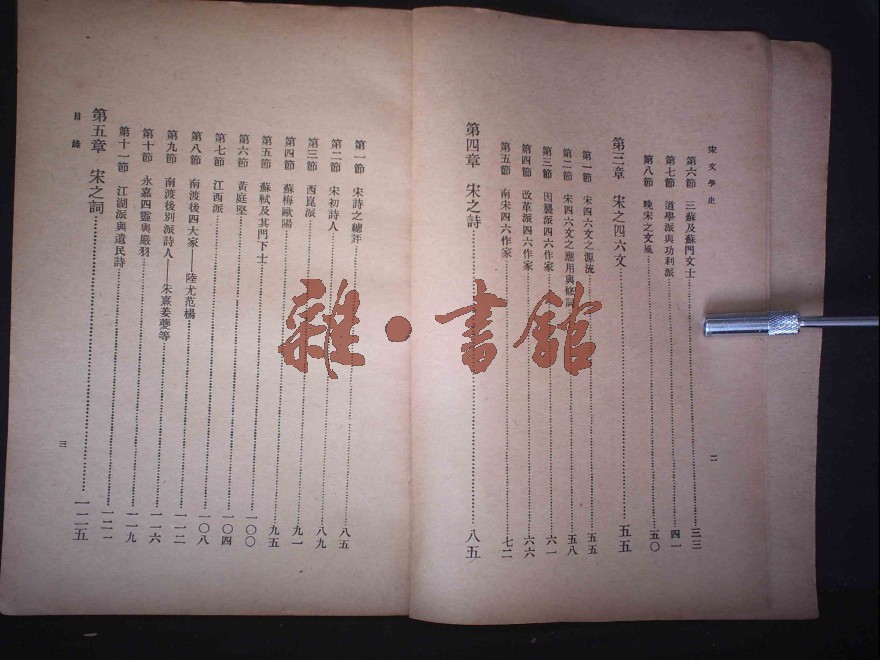 宋文學史
第六節 三蘇及蘇門文士……三三
第七節 道學派與功利派……四一
第八節 晚宋之文風……五〇
第三章 宋之四六文……五五
第一節 宋四六文之源流……五五
第二節 宋四六文之應用與修詞……五八
第三節 因襲派四六作家……六一
第四節 改革派四六作家……六六
第五節 南宋四六作家……七二
第四章 宋之詩……八五
二
第一節 宋詩之總評……八五
第二節 宋初詩人……八九
第三節 西崑派……九一
第四節 蘇梅歐陽……九五
第五節 蘇軾及其門下士……一〇〇
第六節 黃庭堅……一〇四
第七節 江西派……一〇八
第八節 南渡後四大家——陸尤范楊……一一二
第九節 南渡後別派詩人——朱熹姜夔等……一一六
第十節 永嘉四靈與嚴羽……一一九
第十一節 江湖派與遺民詩……一二一
第五章 宋之詞……一二五
目錄
三
雜·書館